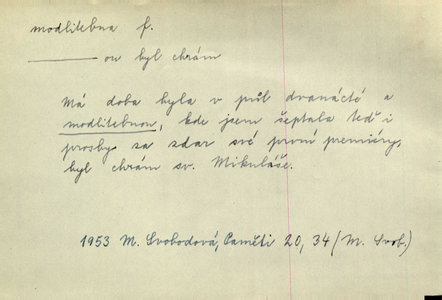 modlitebna f.
——— ou byl chrám
Má doba byla v půl dvanácté a
modlitebnou, kde jsem šeptala teď i
prosby za zdar své první premiéry,
byl chrám sv. Mikuláše.
1953 M. Svobodová, Paměti 20, 34 (M. Svob.)